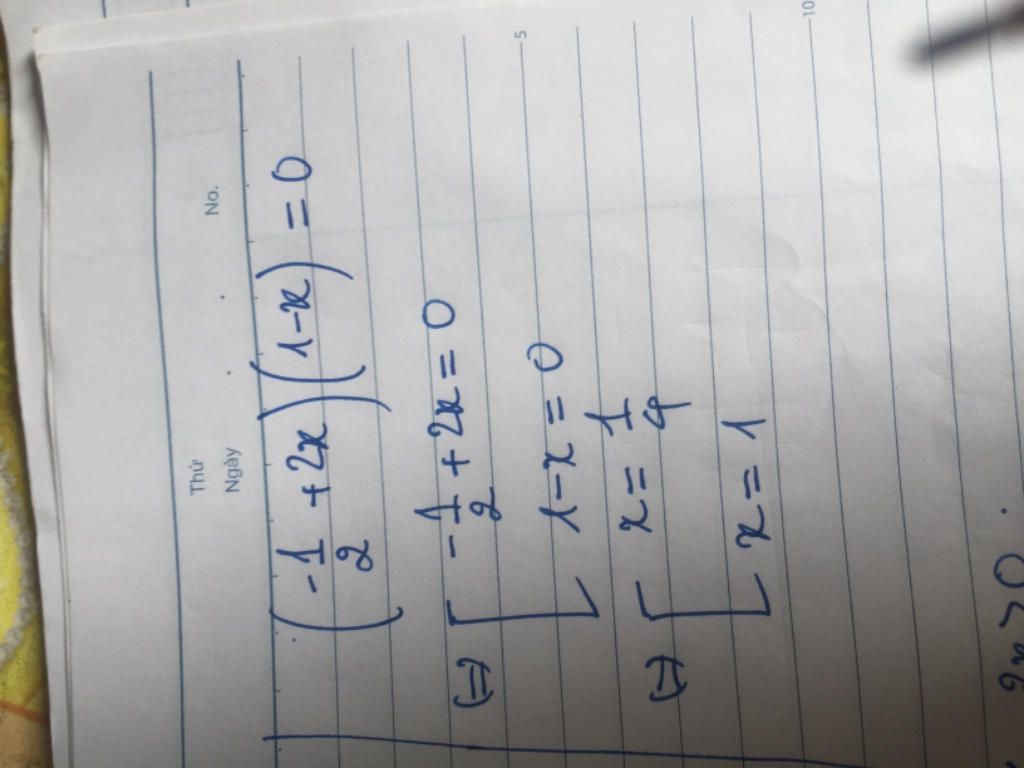 Thứ
Ngày
No.
(-1/2 + 2x)(1-x) = 0
(=) [ -1/2 + 2x = 0
1-x = 0
(=) [ x = 1/4
x = 1
5
10
2x > 0.